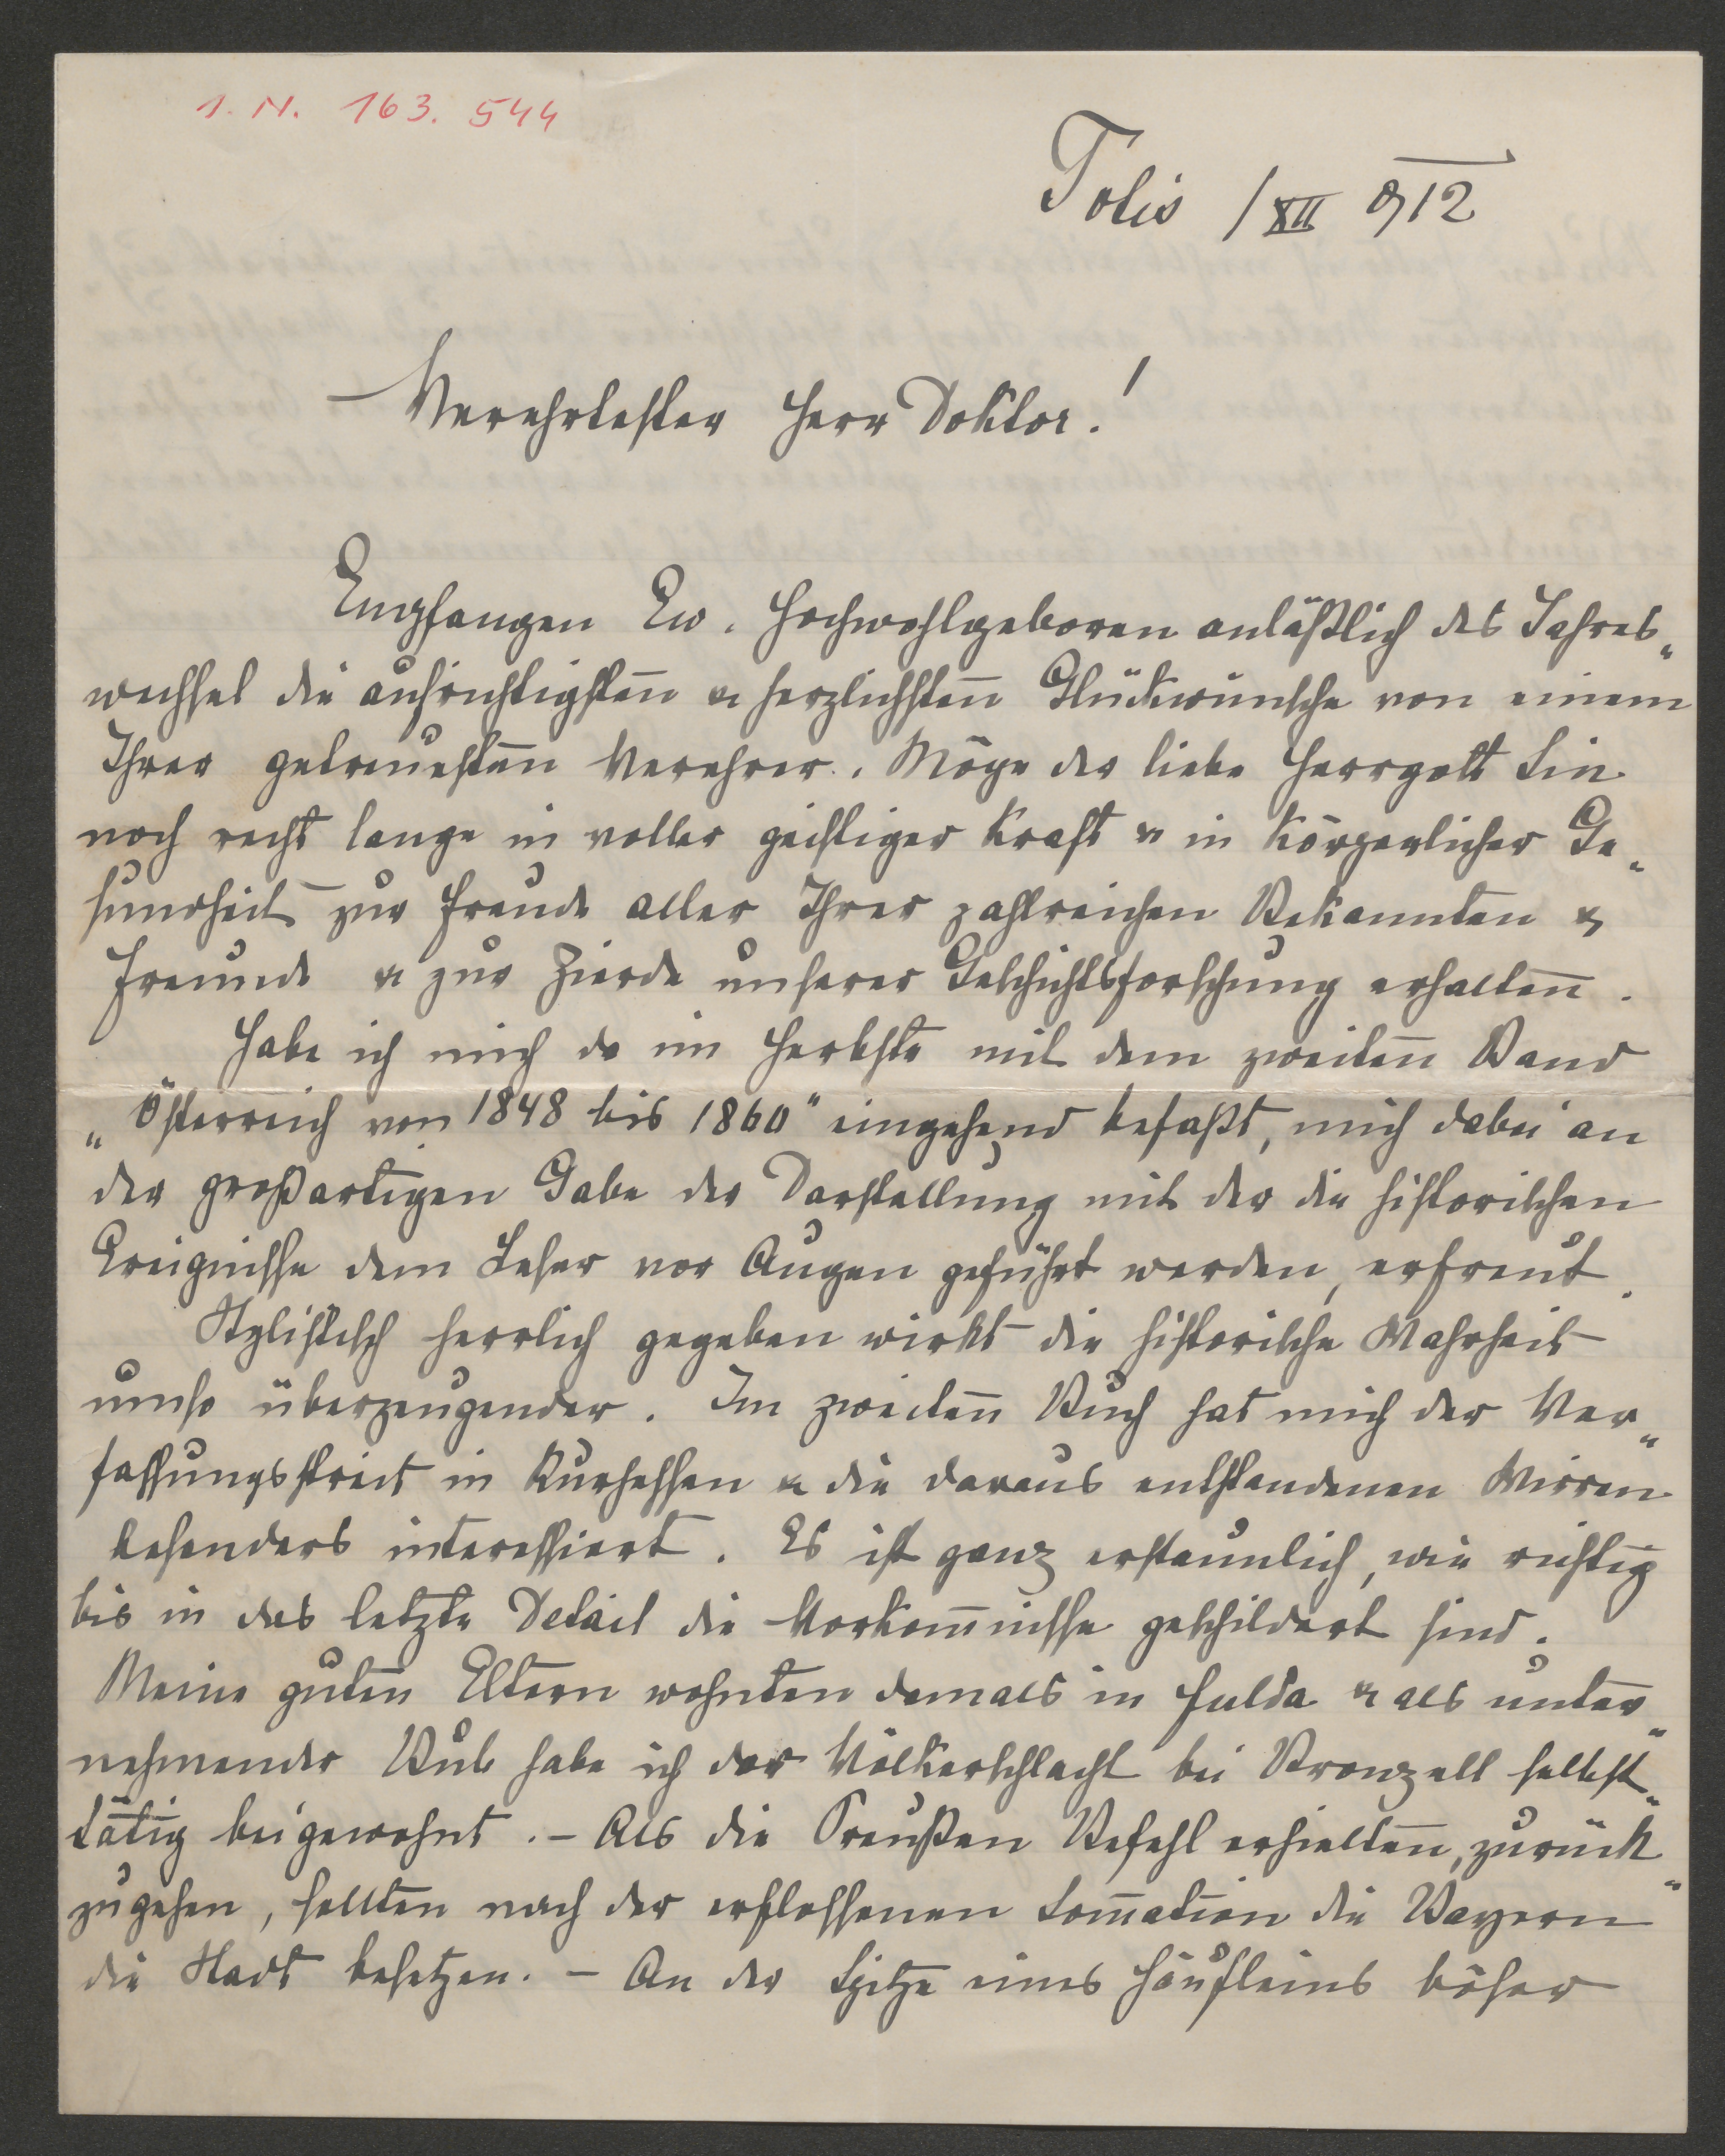 I. N. 163. 544
Totis /XII 912
Verehrtester Herr Doktor!
Empfangen Ew. Hochwohlgeboren anläßlich des Jahres„
wechsel die aufrichtigsten & herzlichsten Glückwünsche von einem
Ihrer getreuesten Verehrer. Möge der liebe Herrgott Sie
noch recht lange in voller geistiger Kraft & in körperlicher Ge„
sundheit zur Freude aller Ihrer zahlreichen Bekannten &
Freunde & zur Zierde unserer Geschichtsforschung erhalten.
Habe ich mich da im Herbste mit dem zweiten Band
„Österreich von 1848 bis 1860" eingehend befaßt, mich dabei an
der großartigen Gabe der Darstellung mit der die historischen
Ereignisse dem Leser vor Augen geführt werden, erfreut.
Stylistisch herrlich gegeben wirkt die historische Wahrheit
umso überzeugender. Im zweiten Buch hat mich der Ver„
fassungsstreit in Kurhessen & die daraus entstandenen Wirren
besonders interessiert. Es ist ganz erstaunlich, wie richtig
bis in das letzte Detail die Vorkom̅nisse geschildert sind.
Meine guten Eltern wohnten damals in Fulda & als unter„
nehmender Bub habe ich der Völkerschlacht bei Bronzell selbst„
tätig beigewohnt. – Als die Preußen Befehl erhielten, zurück„
zugehen, sollten nach der erflossenen Som̅ation die Bayern
die Stadt besetzen. – An der Spitze eines Häufleins böser